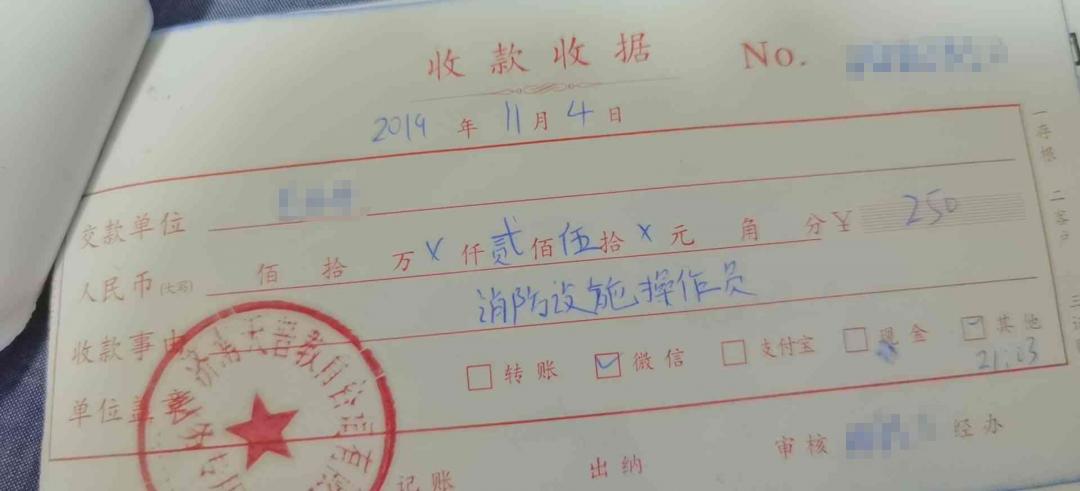 收款收据 No.
2019年11月4日
交款单位
人民币(大写) 佰 拾 万 x 仟 贰 佰 伍 拾 x 元 角 分 ¥ 250
收款事由 消防设施操作员
单位盖章 转账 微信 支付宝 现金 其他
21:03
记账 出纳 审核 经办
一存根 二客户